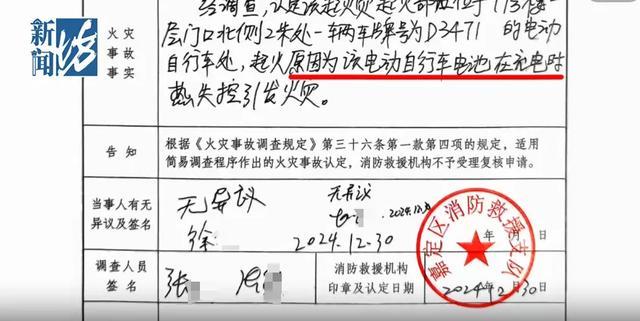 新闻坊
经调查，认定该起火灾起火部位位于113号楼一
层门口北侧2米处一辆车牌号为D3471 的电动
自行车处，起火原因为该电动自行车电池在充电时
热失控引发火灾。
火灾
事故
事实
告知
根据《火灾事故调查规定》第三十六条第一款第四项的规定，适用
简易调查程序作出的火灾事故认定，消防救援机构不予受理复核申请。
当事人有无
异议及签名
无异议
徐
2024.12.30
无异议
2024.12.30
年 月 日
调查人员
签名
张
消防救援机构
印章及认定日期
嘉定区消防救援支队
2024 12 30